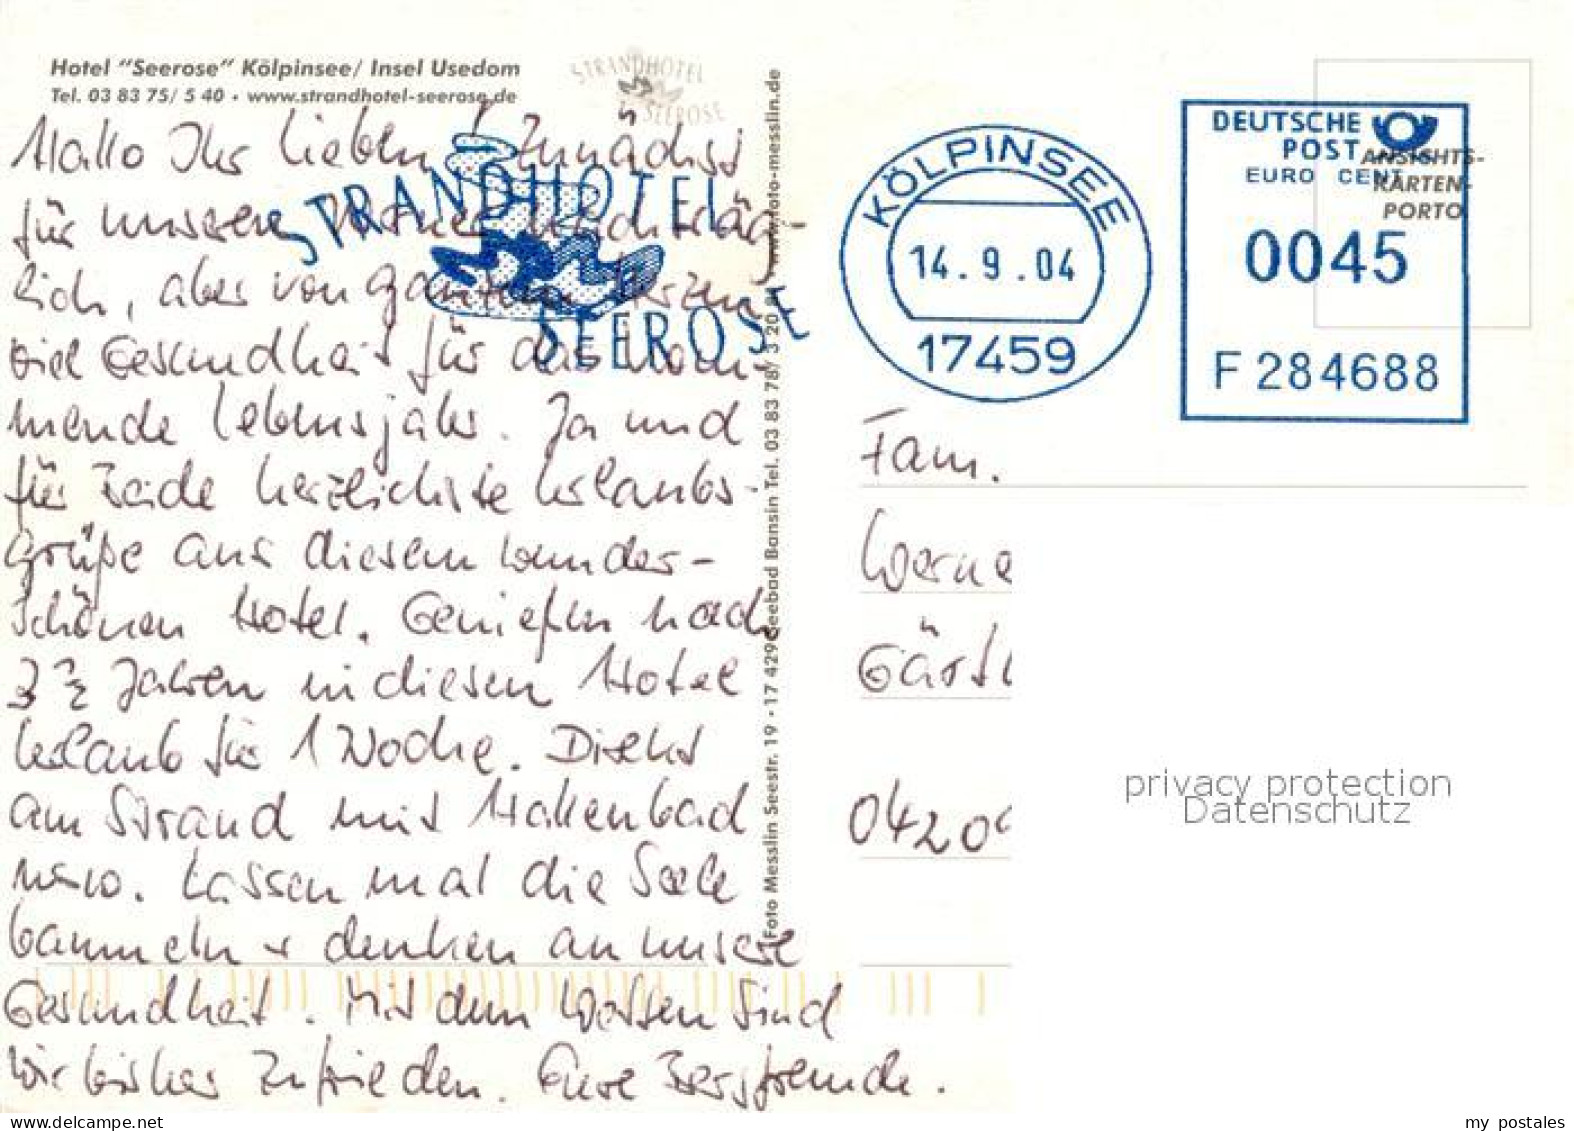 Hotel "Seerose" Kölpinsee/ Insel Usedom
Tel. 03 83 75/ 5 40 • www.strandhotel-seerose.de
STRANDHOTEL
SEEROSE
STRANDHOTEL
SEEROSE
Hallo Ihr Lieben! Zunächst
für unseren Werner nachträg-
lich, aber von ganzem Herzen
viel Gesundheit für das kom-
mende Lebensjahr. Ja und
für Beide herzlichste Urlaubs-
grüße aus diesem wunder-
schönen Hotel. Genießen nach
3 ½ Jahren in diesem Hotel
Urlaub für 1 Woche. Direkt
am Strand mit Hallenbad
usw. Lassen mal die Seele
baumeln + denken an unsere
Gesundheit. Mit dem Wetter sind
wir bisher zufrieden. Eure Bergfreunde.
Foto Messlin Seestr. 19 • 17 429 Seebad Bansin Tel. 03 83 78/ 3 20 www.foto-messlin.de
KÖLPINSEE
14.9.04
17459
DEUTSCHE
POST
EURO CENT
0045
F 284688
ANSICHTS-
KARTEN-
PORTO
Fam.
Werne
Gärt
0420
privacy protection
Datenschutz
www.delcampe.net
my postales